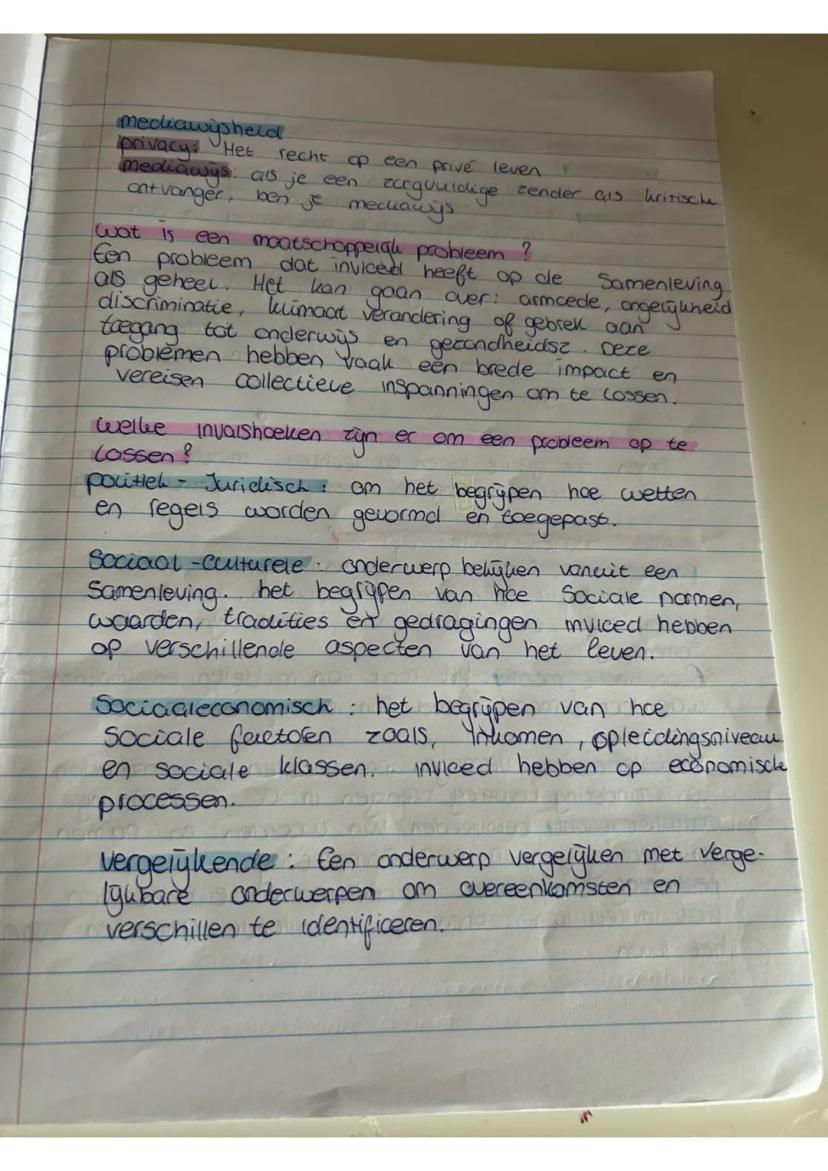 mediawijsheid
privacy: Het recht op een privé leven
mediawijs: als je een zorgvuldige zender als kritische
ontvanger, ben je mediawijs
wat is een maatschappelijk probleem?
Een probleem dat invloed heeft op de samenleving
als geheel. Het kan gaan over: armoede, ongelijkheid
discriminatie, klimaat verandering of gebrek aan
toegang tot onderwijs en gezondheidsz. Deze
problemen hebben vaak een brede impact en
vereisen collectieve inspanningen om te lossen.
welke invalshoeken zijn er om een probleem op te
lossen?
politiek - Juridisch: om het begrijpen hoe wetten
en regels worden gevormd en toegepast.
Sociaal-culturele: onderwerp bekijken vanuit een
Samenleving. het begrijpen van hoe sociale normen,
waarden, tradities en gedragingen invloed hebben
op verschillende aspecten van het leven.
Sociaaleconomisch: het begrijpen van hoe
sociale factoren zoals, inkomen, opleidingsniveau
en sociale klassen. invloed hebben op economisch
processen.
vergelijkende: Een onderwerp vergelijken met verge-
lijkbare onderwerpen om overeenkomsten en
verschillen te identificeren.